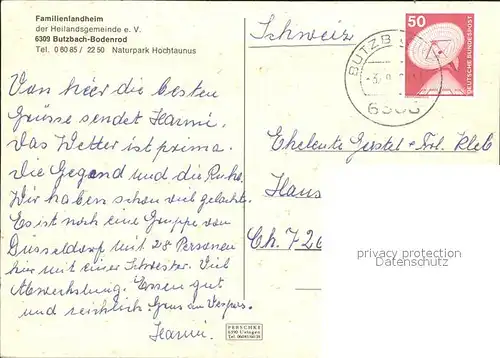 Familienlandheim
der Heilandsgemeinde e. V.
6309 Butzbach-Bodenrod
Tel. 0 60 85 / 22 50 Naturpark Hochtaunus
Schweiz
50
DEUTSCHE BUNDESPOST
BUTZB
Von hier die besten
Grüsse sendet Harmi.
Das Wetter ist prima.
Die Gegend und die Ruhe.
Wir haben schon viel gelacht.
Es ist noch eine Gruppe von
Düsseldorf mit 28 Personen
hier mit einer Schwester. Viel
Abwechslung. Essen gut
und reichlich. Gruss an
Harmi.
Eheleute Gerstel + Frl. Kleb
Haus
Ch. 726
privacy protection
Datenschutz
PERSCHKE
6390 Usingen